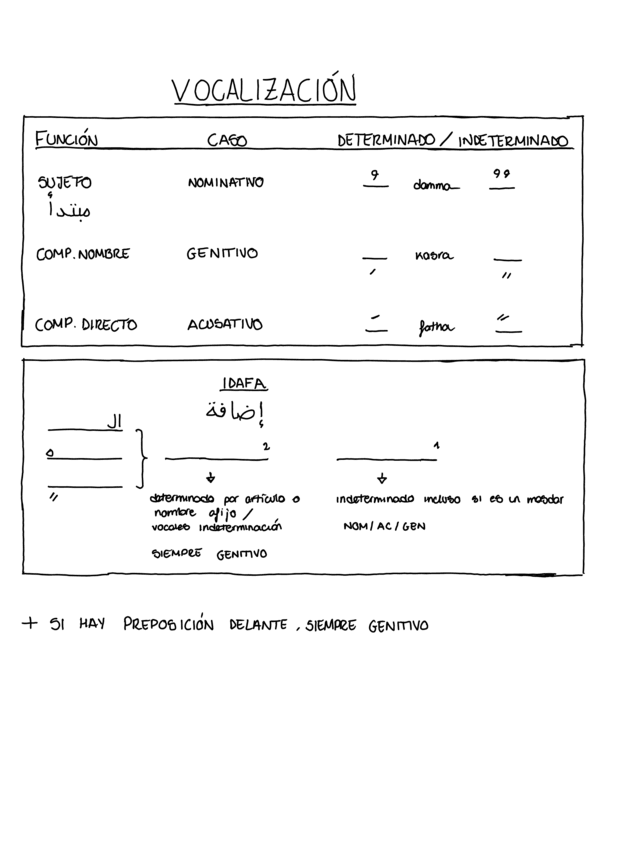 VOCALIZACIÓN
FUNCIÓN CASO DETERMINADO / INDETERMINADO
SUJETO NOMINATIVO damma
مبتدأ
COMP. NOMBRE GENITIVO kasra
COMP. DIRECTO ACUSATIVO fatha
IDAFA
إضافة
ال
2 1
determinado por artículo o indeterminado incluso si es un masdar
nombre afijo /
vocales indeterminación NOM / AC / GEN
SIEMPRE GENITIVO
+ SI HAY PREPOSICIÓN DELANTE, SIEMPRE GENITIVO